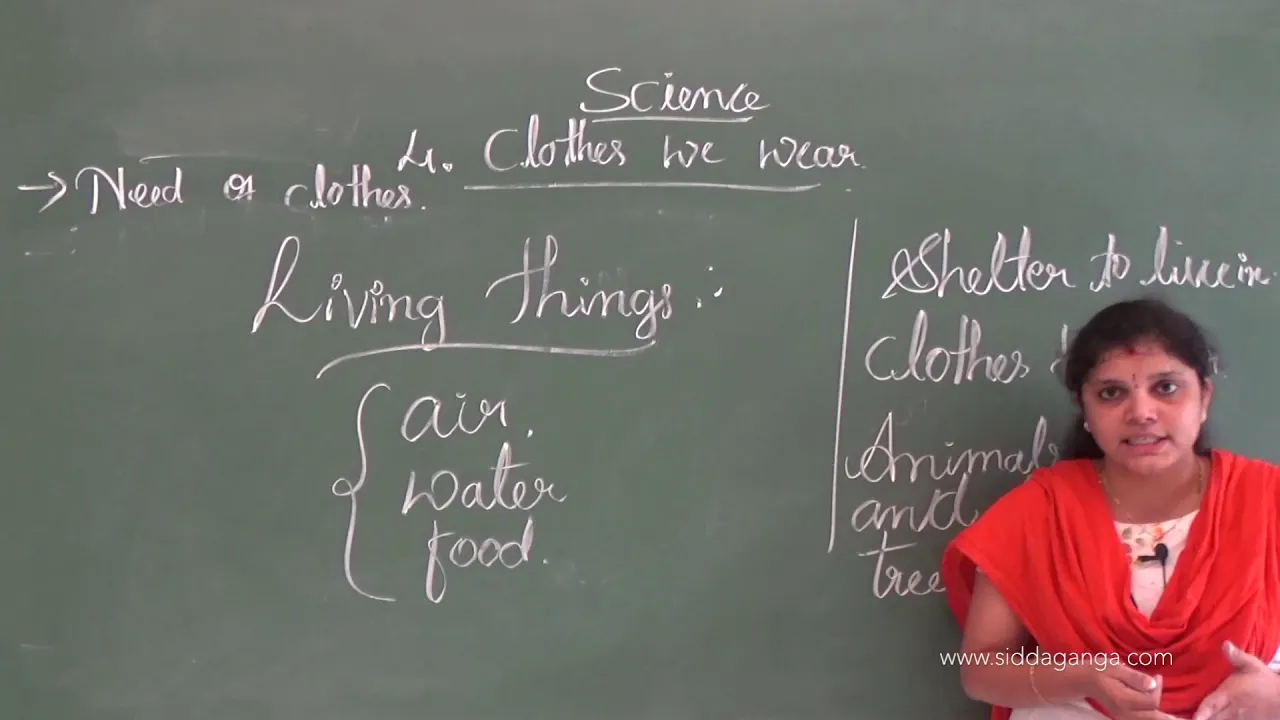 Science
4. Clothes we wear.
→ Need of clothes.
Living things :-
air.
water
food.
Shelter to live in
Clothes
Animals
and
tree
www.siddaganga.com